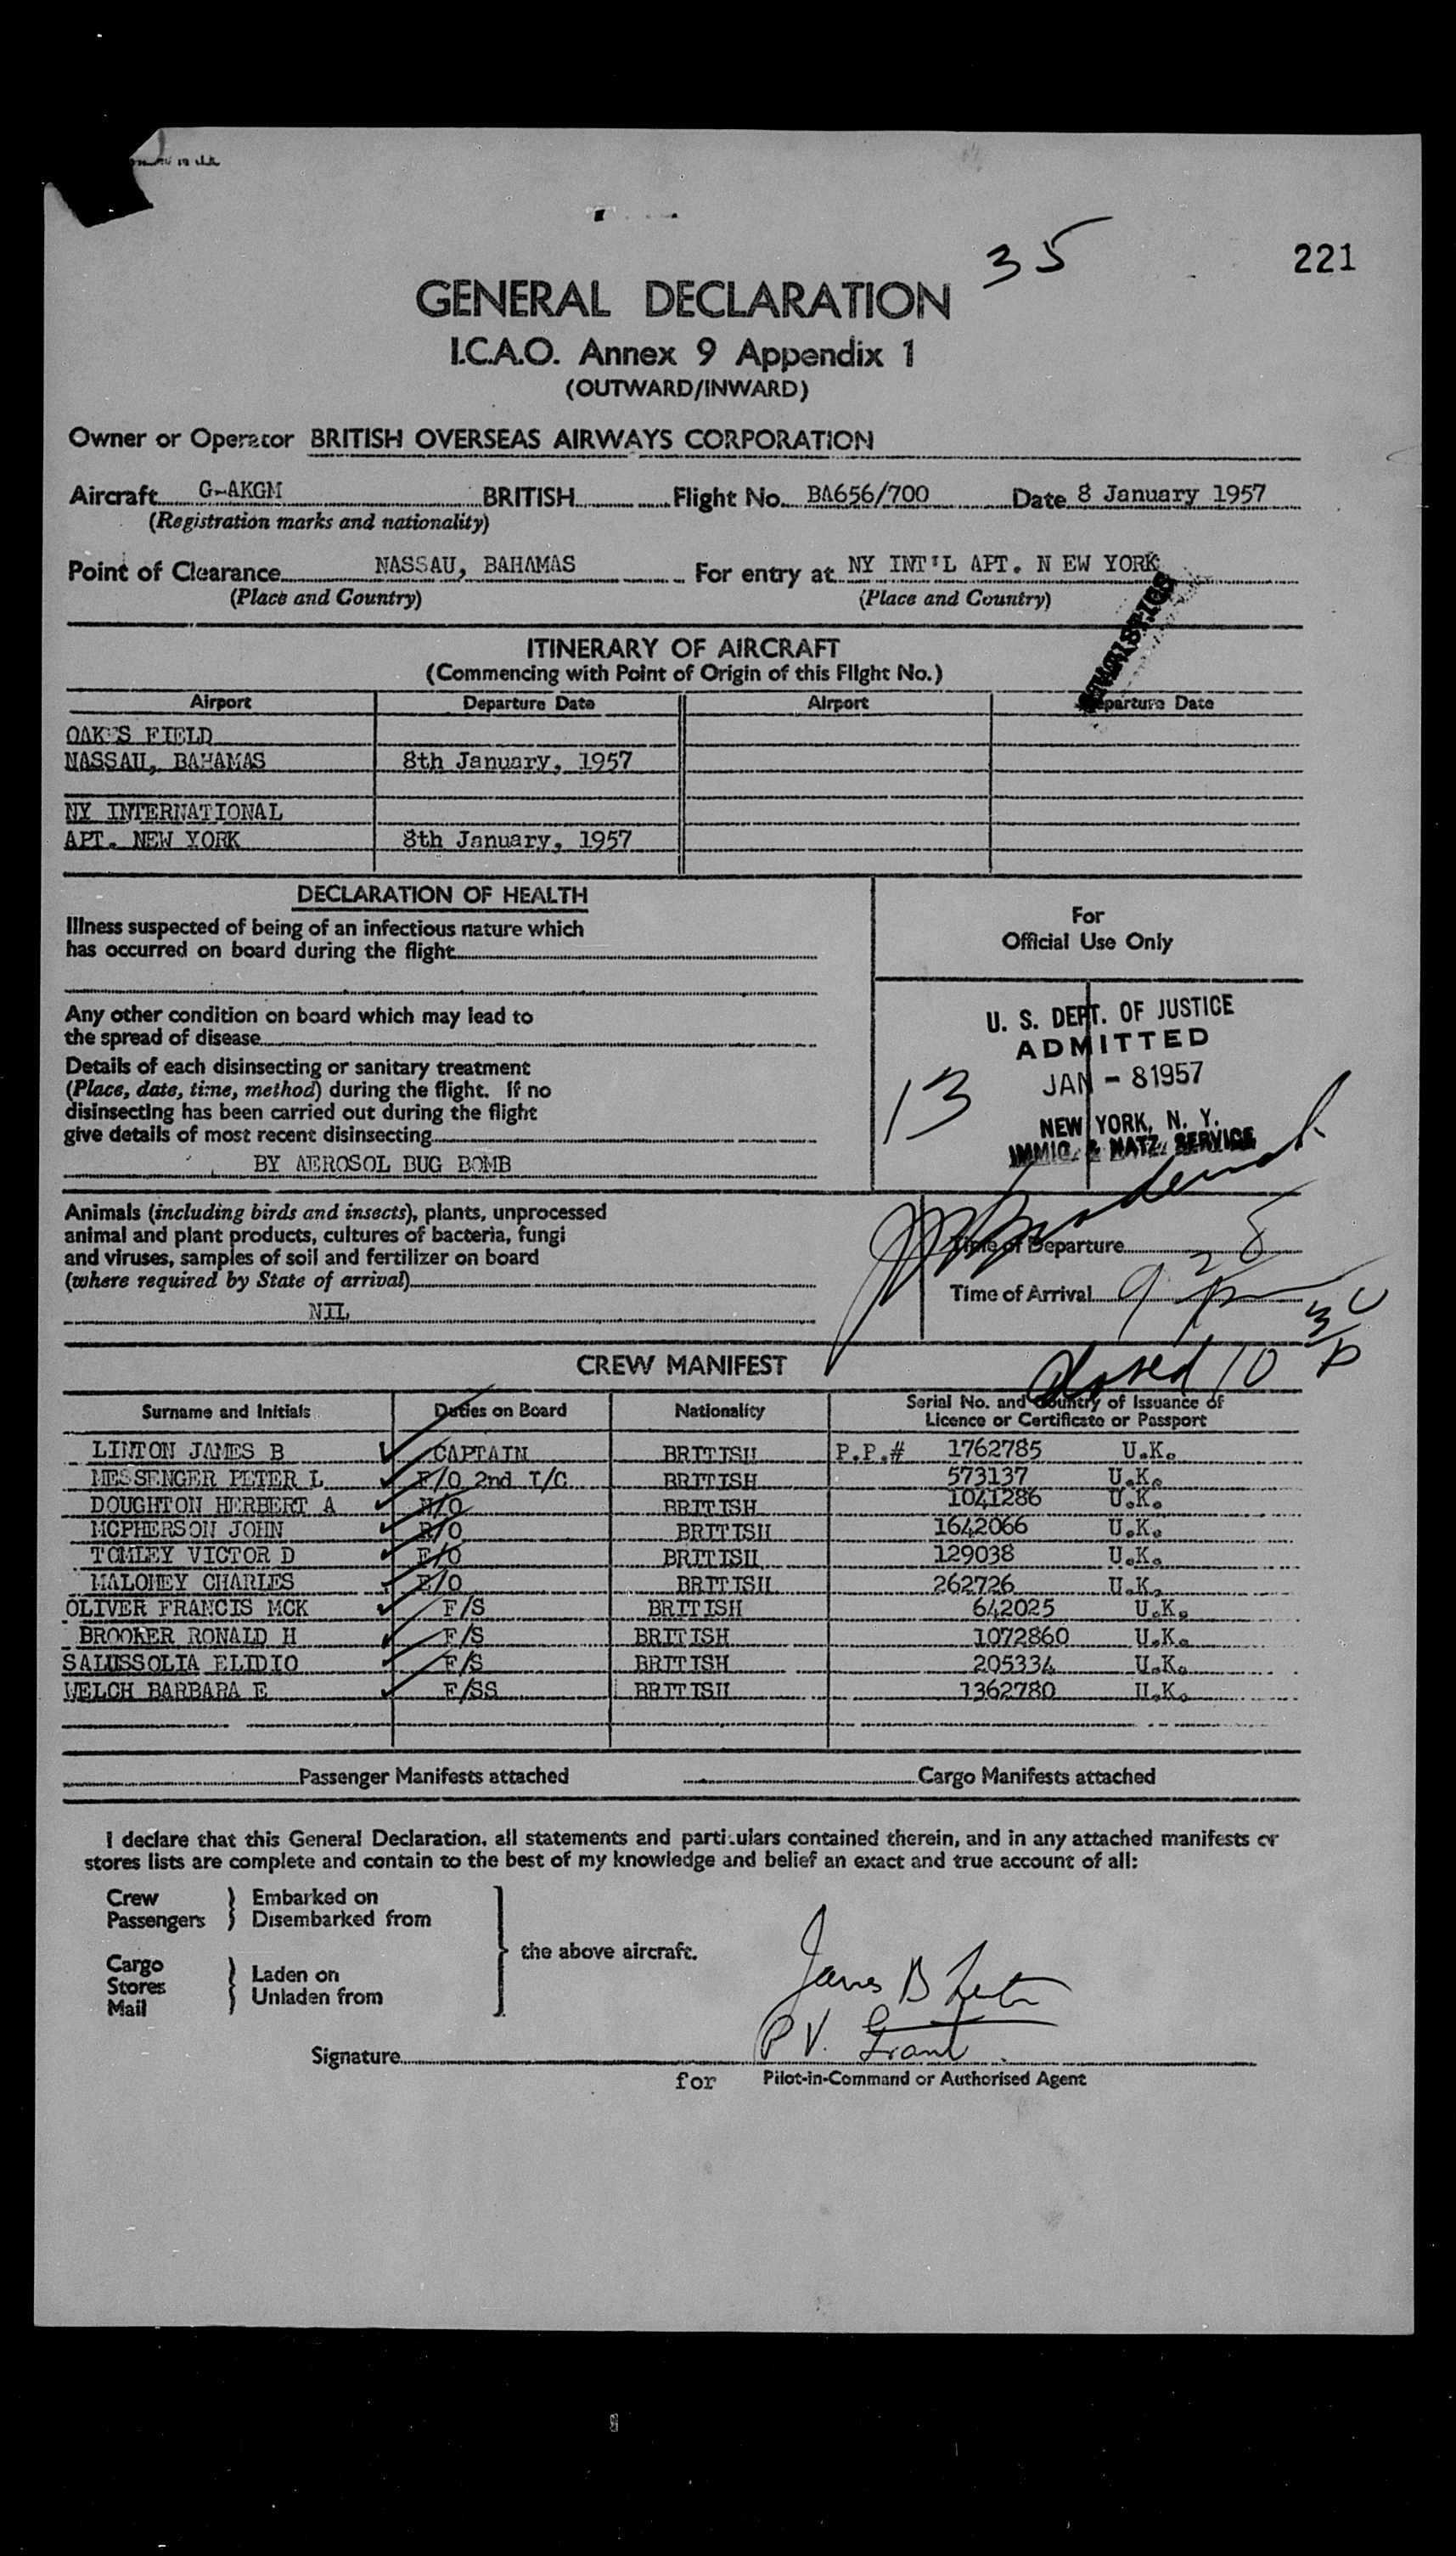 35
221
GENERAL DECLARATION
I.C.A.O. Annex 9 Appendix 1
(OUTWARD/INWARD)
Owner or Operator BRITISH OVERSEAS AIRWAYS CORPORATION
Aircraft G-AKGM BRITISH Flight No. BA656/700 Date 8 January 1957
(Registration marks and nationality)
Point of Clearance NASSAU, BAHAMAS For entry at NY INT'L APT. N EW YORK
(Place and Country) (Place and Country)
STATISTICS
ITINERARY OF AIRCRAFT
(Commencing with Point of Origin of this Flight No.)
Airport Departure Date Airport Departure Date
OAKES FIELD
NASSAU, BAHAMAS 8th January, 1957
NY INTERNATIONAL
APT. NEW YORK 8th January, 1957
DECLARATION OF HEALTH
Illness suspected of being of an infectious nature which
has occurred on board during the flight
Any other condition on board which may lead to
the spread of disease
Details of each disinsecting or sanitary treatment
(Place, date, time, method) during the flight. If no
disinsecting has been carried out during the flight
give details of most recent disinsecting
BY AEROSOL BUG BOMB
For
Official Use Only
U. S. DEPT. OF JUSTICE
ADMITTED
JAN - 8 1957
13
NEW YORK, N. Y.
IMMIG. & NATZ. SERVICE
Animals (including birds and insects), plants, unprocessed
animal and plant products, cultures of bacteria, fungi
and viruses, samples of soil and fertilizer on board
(where required by State of arrival)
NIL
Time of Departure
Time of Arrival 9 28 p
Closed 10 30 p
CREW MANIFEST
Surname and Initials Duties on Board Nationality Serial No. and Country of Issuance of
Licence or Certificate or Passport
LINTON JAMES B CAPTAIN BRITISH P.P.# 1762785 U.K.
MESSENGER PETER L F/O 2nd I/C BRITISH 573137 U.K.
DOUGHTON HERBERT A N/O BRITISH 1041286 U.K.
MCPHERSON JOHN R/O BRITISH 1642066 U.K.
TOMLEY VICTOR D E/O BRITISH 129038 U.K.
MALONEY CHARLES E/O BRITISH 262726 U.K.
OLIVER FRANCIS MCK F/S BRITISH 642025 U.K.
BROOKER RONALD H F/S BRITISH 1072860 U.K.
SALUSSOLIA ELIDIO F/S BRITISH 205334 U.K.
WELCH BARBARA E F/SS BRITISH 1362780 U.K.
Passenger Manifests attached Cargo Manifests attached
I declare that this General Declaration, all statements and particulars contained therein, and in any attached manifests or
stores lists are complete and contain to the best of my knowledge and belief an exact and true account of all:
Crew Embarked on
Passengers Disembarked from
the above aircraft.
Cargo
Stores Laden on
Mail Unladen from
James B Linton
P V. Grant
Signature
for Pilot-in-Command or Authorised Agent